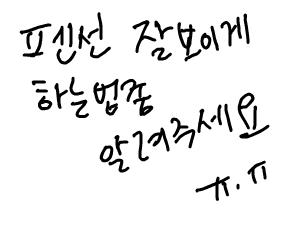 표신선 잘보이게
하는법좀
알려주세요
ㅠ.ㅠ